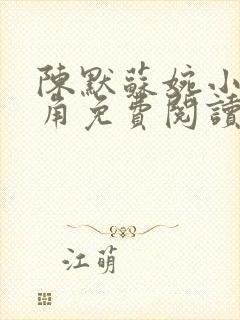 陳默蘇婉小
角免費閱讀
江萌